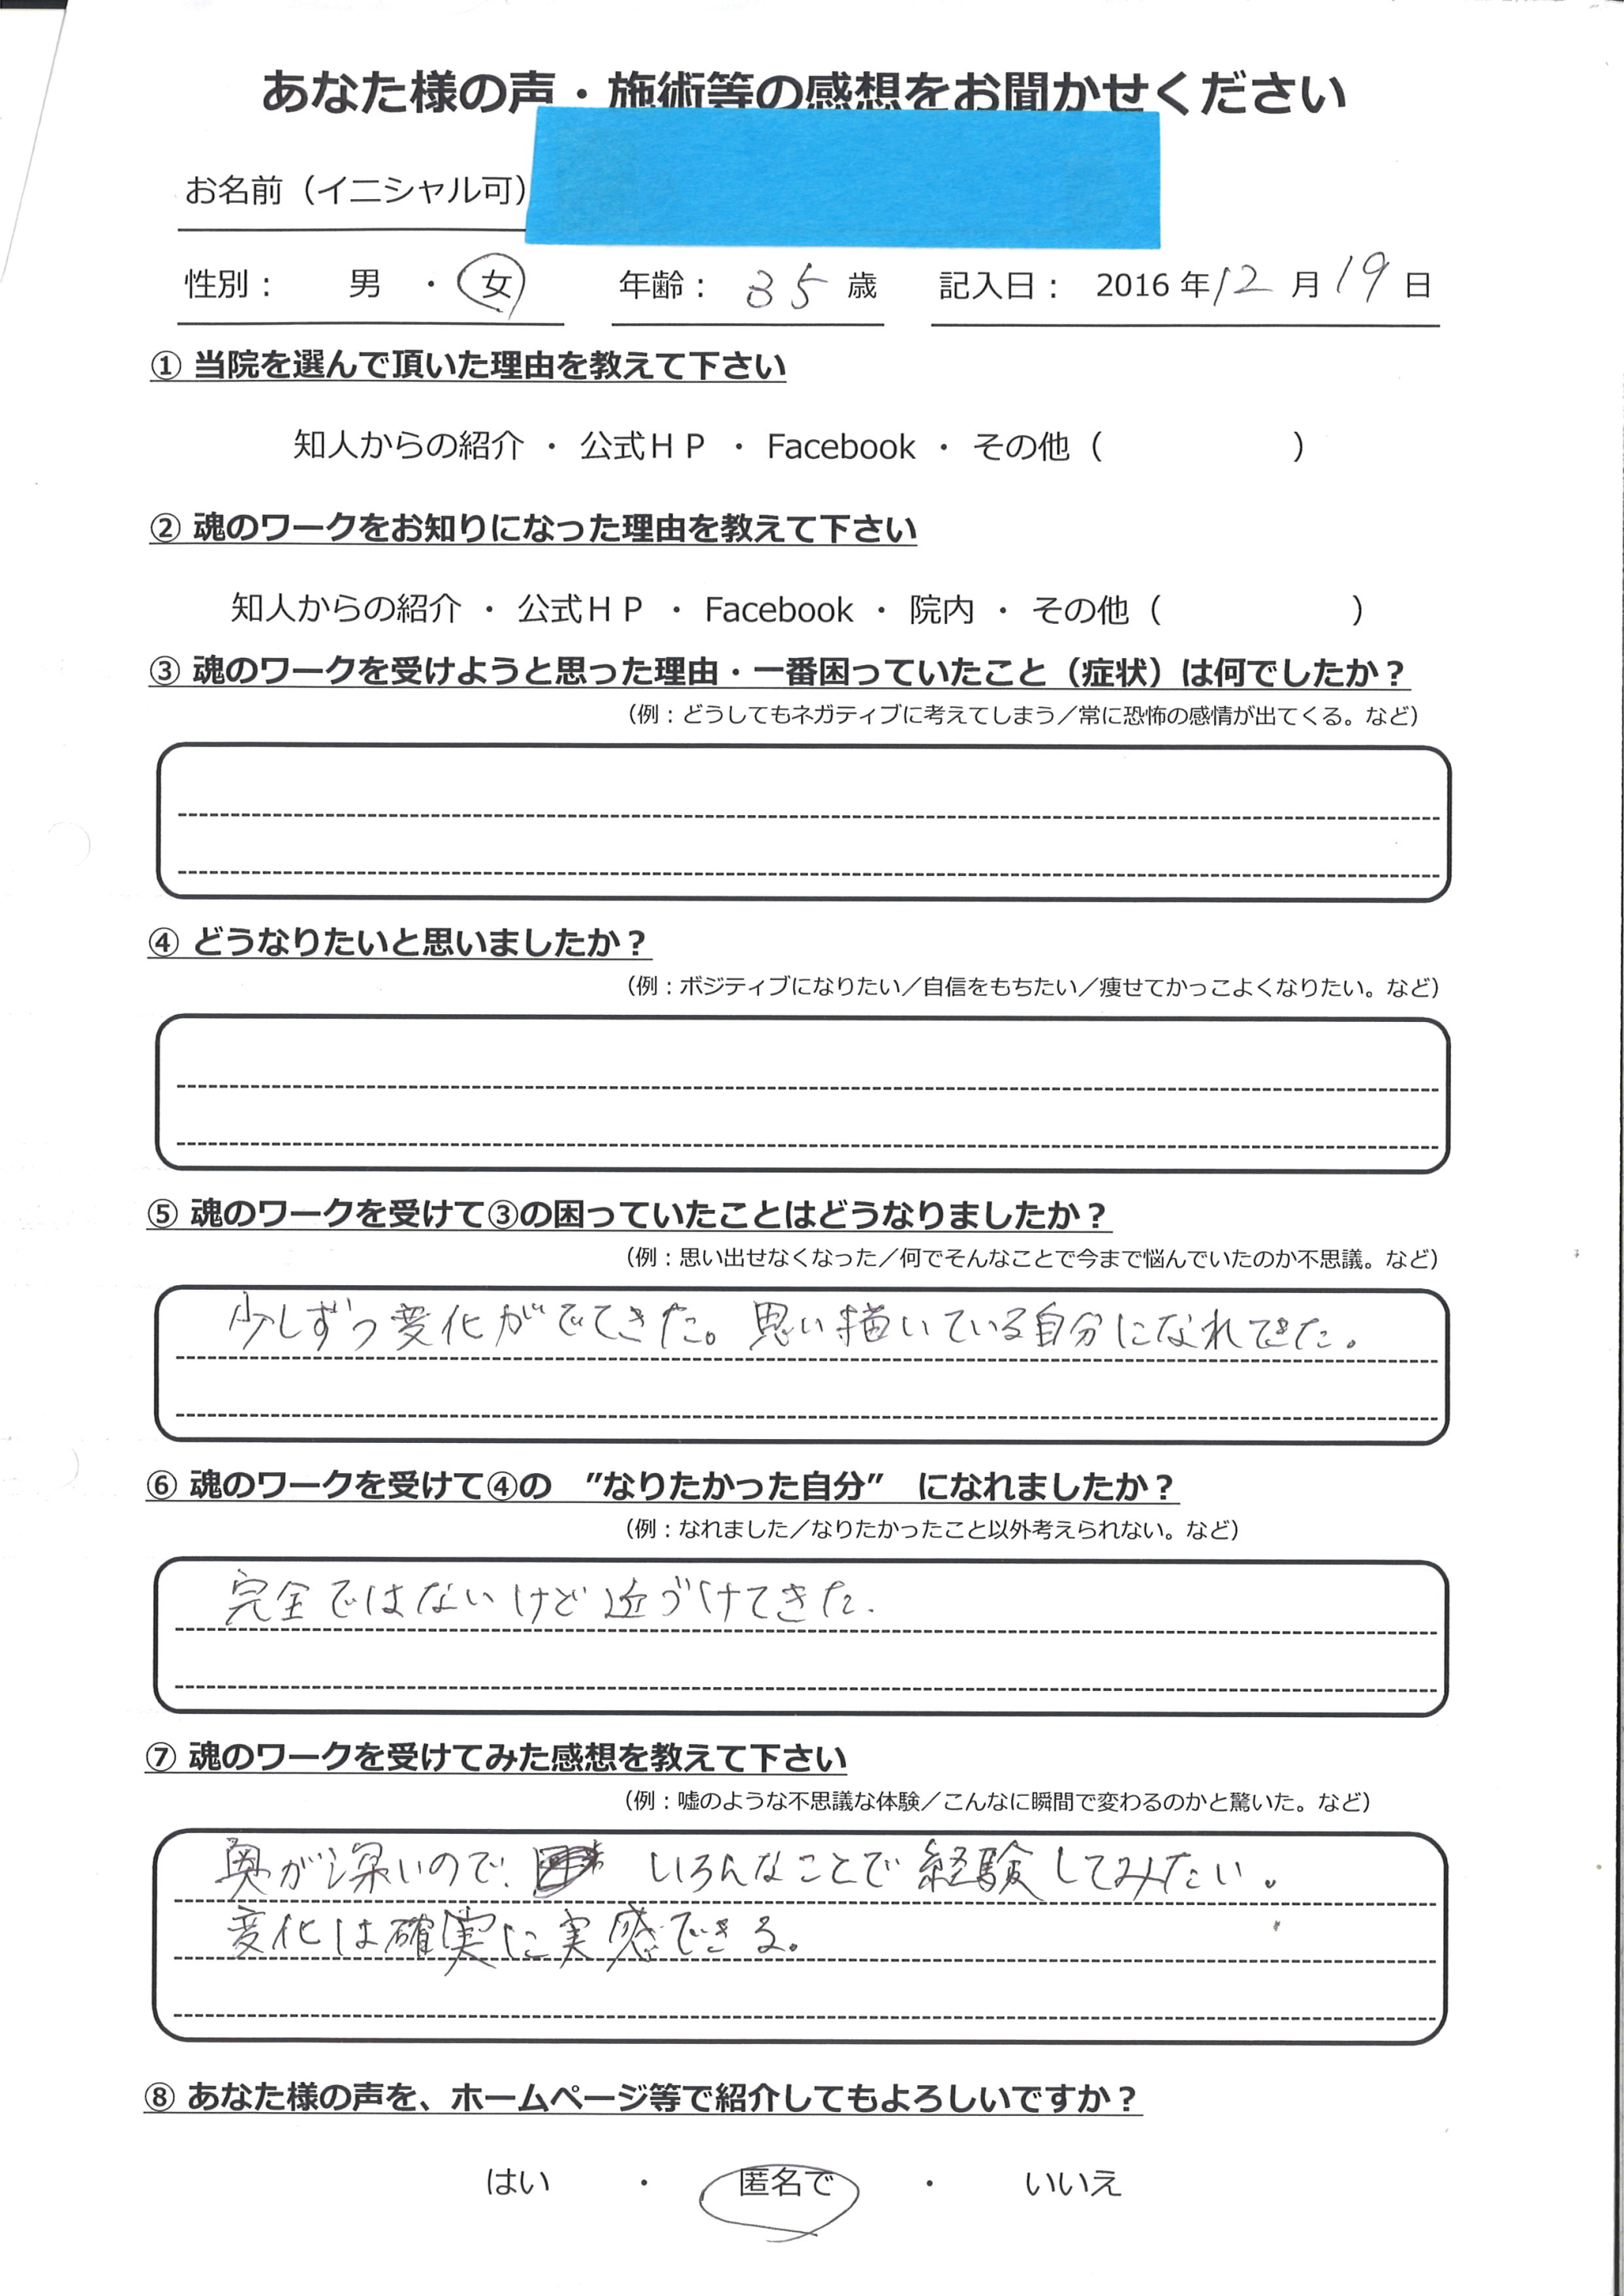 あなた様の声・施術等の感想をお聞かせください
お名前（イニシャル可）
性別： 男 ・ 女 年齢： 35 歳 記入日： 2016 年 12 月 19 日
① 当院を選んで頂いた理由を教えて下さい
知人からの紹介 ・ 公式ＨＰ ・ Facebook ・ その他（ ）
② 魂のワークをお知りになった理由を教えて下さい
知人からの紹介 ・ 公式ＨＰ ・ Facebook ・ 院内 ・ その他（ ）
③ 魂のワークを受けようと思った理由・一番困っていたこと（症状）は何でしたか？
（例：どうしてもネガティブに考えてしまう／常に恐怖の感情が出てくる。など）
④ どうなりたいと思いましたか？
（例：ポジティブになりたい／自信をもちたい／痩せてかっこよくなりたい。など）
⑤ 魂のワークを受けて③の困っていたことはどうなりましたか？
（例：思い出せなくなった／何でそんなことで今まで悩んでいたのか不思議。など）
少しずつ変化がでてきた。思い描いている自分になれてきた。
⑥ 魂のワークを受けて④の ”なりたかった自分” になれましたか？
（例：なれました／なりたかったこと以外考えられない。など）
完全ではないけど近づけてきた.
⑦ 魂のワークを受けてみた感想を教えて下さい
（例：嘘のような不思議な体験／こんなに瞬間で変わるのかと驚いた。など）
奥が深いので、いろんなことで経験してみたい。
変化は確実に実感できる。
⑧ あなた様の声を、ホームページ等で紹介してもよろしいですか？
はい ・ 匿名で ・ いいえ